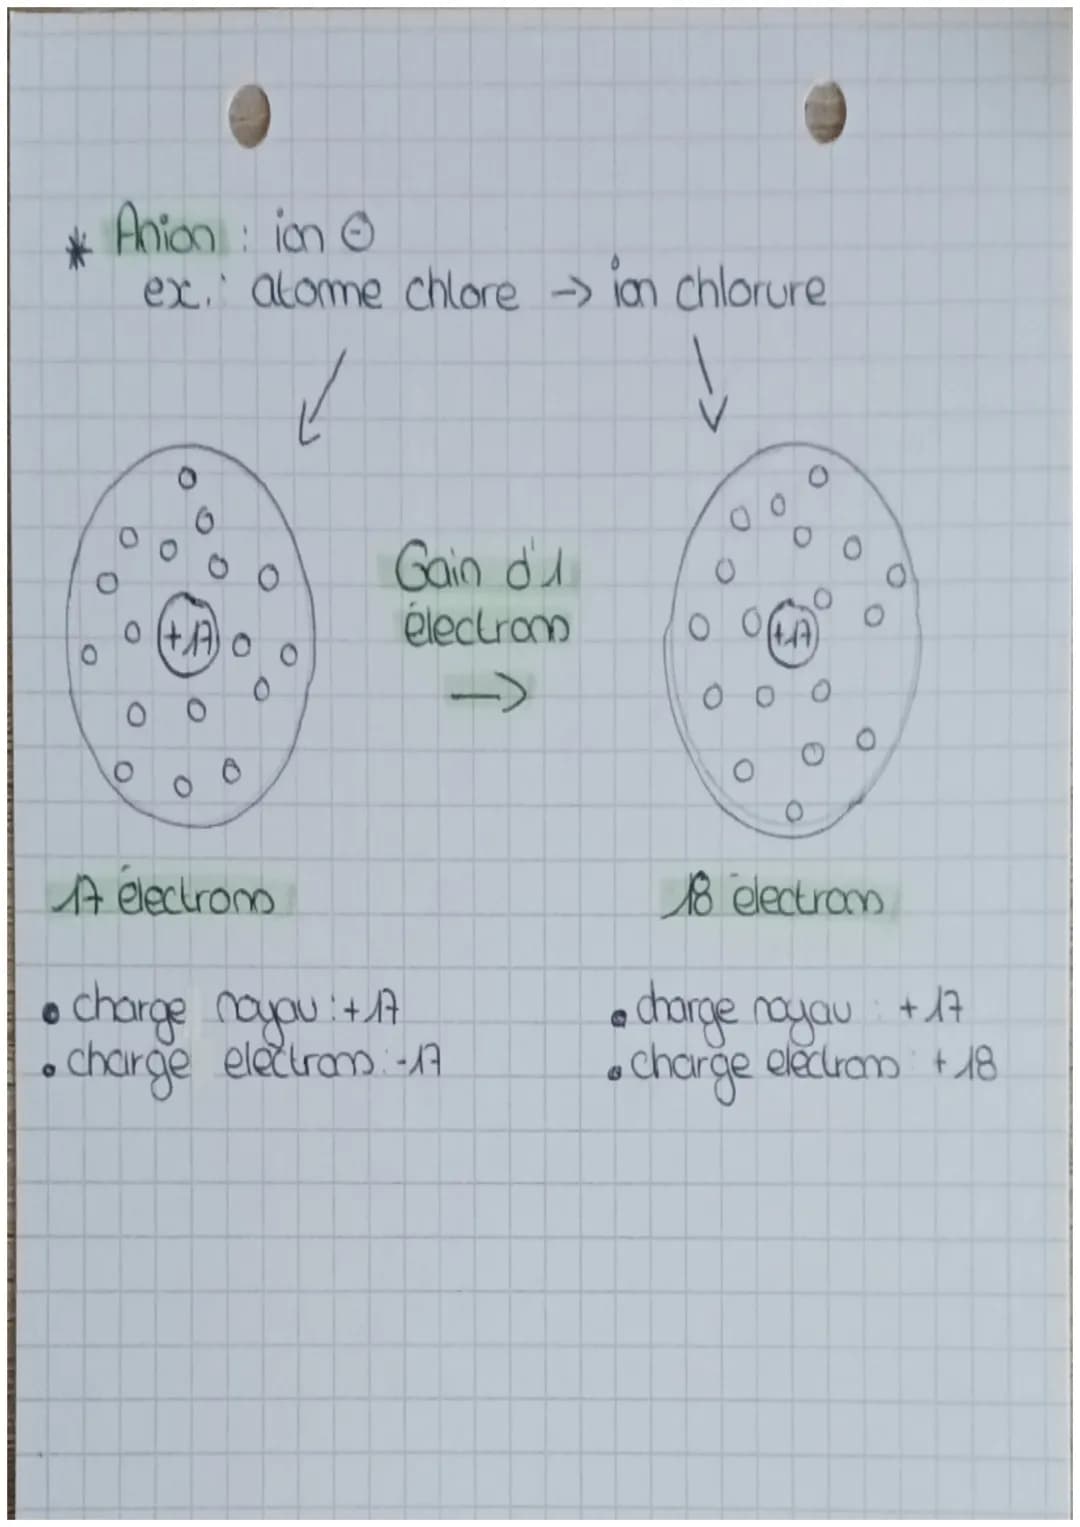 * Anion : ion ⊖
ex.: atome chlore → ion chlorure
+17
Gain d'1
électrons
→
+17
17 électrons
18 électrons
• charge noyau : +17
• charge électrons : -17
• charge noyau : +17
• charge électrons : +18